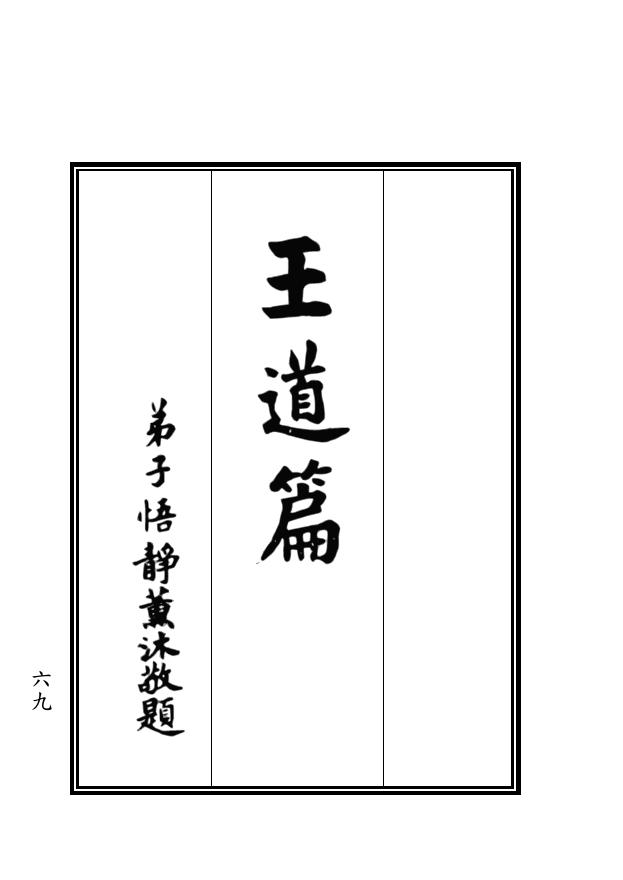 王道篇
弟子悟靜薰沐敬題
六九